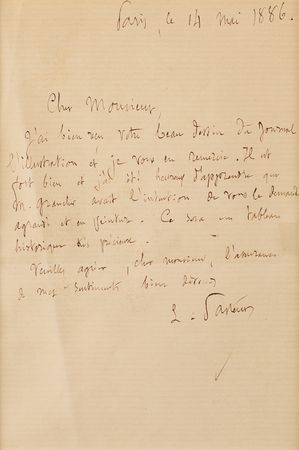 Paris, le 14 Mai 1886.
Cher Monsieur,
J'ai bien reçu votre beau dessin du Journal
l'illustration et je vous en remercie. Il est
fort bien et j'ai été heureux d'apprendre que
M. Grancher avait l'intention de vous le demander
agrandi et en peinture. Ce sera un tableau
historique très précieux.
Veuillez agréer, cher monsieur, l'assurance
de mes sentiments bien dévoués
L. Pasteur